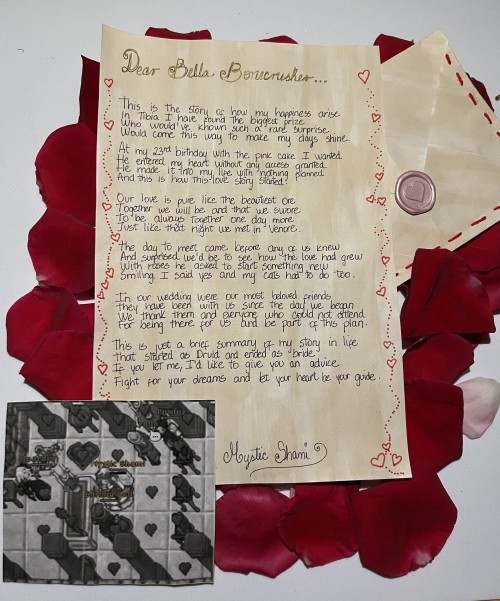 Dear Bella Bonecrusher...
This is the story of how my happiness arise
In Tibia I have found the biggest prize
Who would've known such a rare surprise
Would come this way to make my days shine.
At my 23rd birthday with the pink cake I wanted
He entered my heart without any access granted
He made it into my life with nothing planned
And this is how this love story started!
Our love is pure like the beautiest ore
Together we will be and that we swore
To be always together one day more
Just like that night we met in Venore.
The day to meet came before any of us knew
And surprised we'd be to see how the love had grew
With roses he asked to start something new
Smiling I said yes and my cats had to do too.
In our wedding were our most beloved friends
They have been with us since the day we began
We thank them and everyone who could not attend
For being there for us and be part of this plan.
This is just a brief summary of my story in life
that started as Druid and ended as bride.
If you let me, I'd like to give you an advice
Fight for your dreams and let your heart be your guide.
Mystic Shami
Mystic Shami